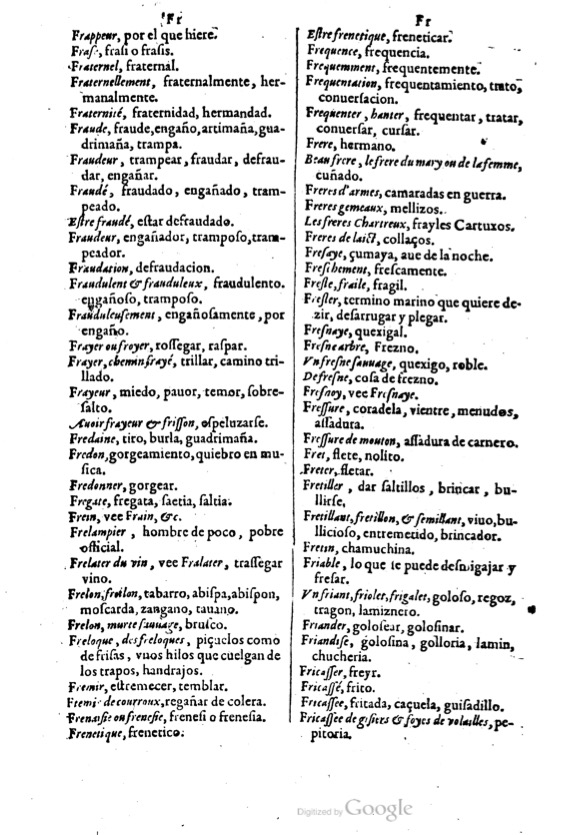 Fr
Frappeur, por el que hiere.
Fras, frasi o frasis.
Fraternel, fraternal.
Fraternellement, fraternalmente, her-
manalmente.
Fraternité, fraternidad, hermandad.
Fraude, fraude, engaño, artimaña, gua-
drimaña, trampa.
Fraudeur, trampear, fraudar, defrau-
dar, engañar.
Fraudé, fraudado, engañado, tram-
peado.
Estre fraudé, estar defraudado.
Fraudeur, engañador, tramposo, tram-
peador.
Fraudation, defraudacion.
Fraudulent & frauduleux, fraudulento.
engañoso, tramposo.
Frauduleusement, engañosamente, por
engaño.
Frayer ou froyer, rossegar, raspar.
Frayer, chemin frayé, trillar, camino tri-
llado.
Frayeur, miedo, pauor, temor, sobre-
salto.
Auoir frayeur & frisson, espeluzarse.
Fredaine, tiro, burla, guadrimaña.
Fredon, gorgeamiento, quiebro en mu-
sica.
Fredonner, gorgear.
Fregate, fregata, saetia, saltia.
Frein, vee Frain, &c.
Frelampier, hombre de poco, pobre
official.
Frelater du vin, vee Fralater, trassegar
vino.
Frelon, froilon, tabarro, abispa, abispon,
moscarda, zangano, tauano.
Frelon, murte sauuage, brusco.
Freloque, des freloques, piçuelos como
de frisas, vnos hilos que cuelgan de
los trapos, handrajos.
Fremir, estremecer, temblar.
Fremir de courroux, regañar de colera.
Frenaisie ou frenesie, frenesi o frenesia.
Frenetique, frenetico.
Fr
Estre frenetique, freneticar.
Frequence, frequencia.
Frequemment, frequentemente.
Frequentation, frequentamiento, trato,
conuersacion.
Frequenter, hanter, frequentar, tratar,
conuersar, cursar.
Frere, hermano.
Beau frere, le frere du mary ou de la femme,
cuñado.
Freres d'armes, camaradas en guerra.
Freres gemeaux, mellizos.
Les freres Chartreux, frayles Cartuxos.
Freres de laict, collaços.
Fresaye, çumaya, aue de la noche.
Freschement, frescamente.
Fresle, fraile, fragil.
Fresler, termino marino que quiere de-
zir, desarrugar y plegar.
Fresnaye, quexigal.
Fresne arbre, Frezno.
Vn fresne sauuage, quexigo, roble.
De fresne, cosa de frezno.
Fresnoy, vee Fresnaye.
Fressure, coradela, vientre, menudos,
assadura.
Fressure de mouton, assadura de carnero.
Fret, flete, nolito.
Freter, fletar.
Fretiller, dar saltillos, brincar, bu-
llirse,
Fretillant, fretillon, & semillant, viuo, bu-
llicioso, entremetido, brincador.
Fretin, chamuchina.
Friable, lo que se puede desmigajar y
fresar.
Vn friant, friolet, frigalet, goloso, regoz,
tragon, lamiznero.
Friander, golosear, golosinar.
Friandise, golosina, golloria, lamin,
chucheria.
Fricasser, freyr.
Fricassé, frito.
Fricassee, fritada, caçuela, guisadillo.
Fricassee de gisiers & foyes de volailles, pe-
pitoria.
Digitized by Google